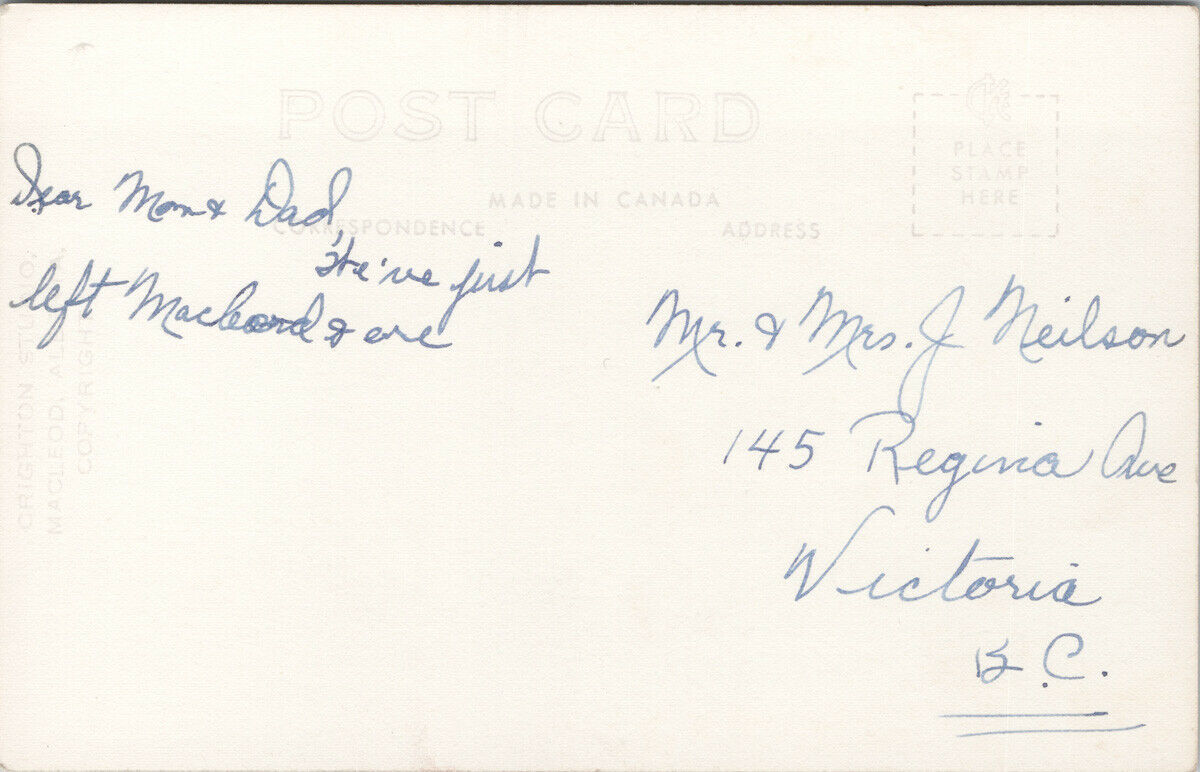 POST CARD
PLACE
STAMP
HERE
MADE IN CANADA
CORRESPONDENCE
ADDRESS
Dear Mom & Dad,
We've just
left Macleord & are
Mr. & Mrs. J Neilson
145 Regina Ave
Victoria
B.C.
CRIGHTON STUDIO,
MACLEOD, ALTA.
COPYRIGHT